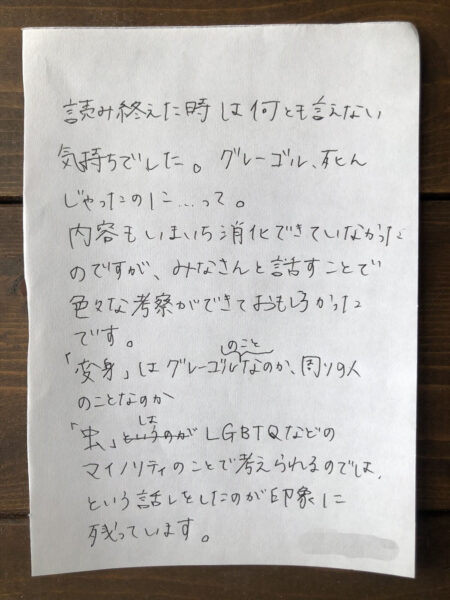 読み終えた時は何とも言えない
気持ちでした。グレーゴル、死んん
じゃったのに…って。
内容もいまいち消化できていなかった
のですが、みなさんと話すことで
色々な考察ができておもしろかった
です。
のこと
「変身」はグレーゴルなのか、周りの人
のことなのか
は
「虫」というのが LGBTQなどの
マイノリティのことで考えられるのでは、
という話しをしたのが印象に
残っています。